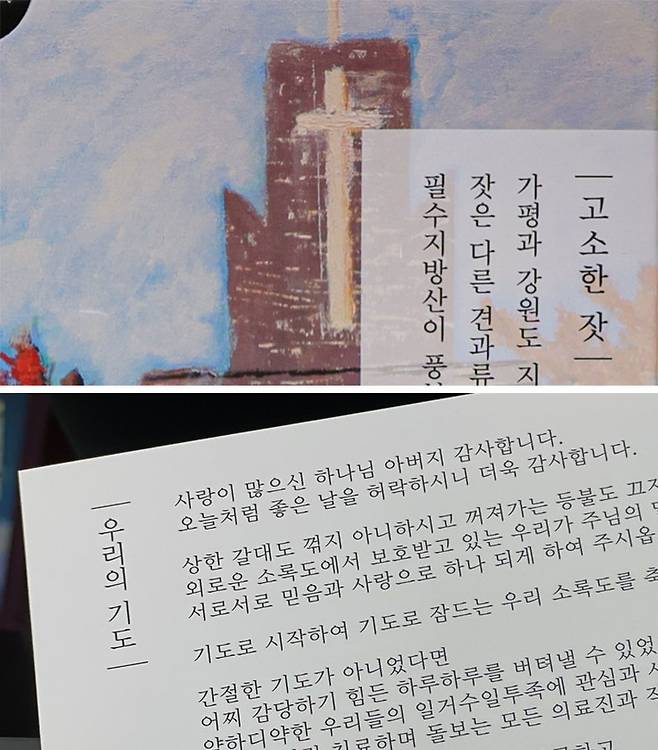 고소한 잣
가평과 강원도 지
잣은 다른 견과류
필수지방산이 풍
우리의 기도
사랑이 많으신 하나님 아버지 감사합니다.
오늘처럼 좋은 날을 허락하시니 더욱 감사합니다.
상한 갈대도 꺾지 아니하시고 꺼져가는 등불도 끄지
외로운 소록도에서 보호받고 있는 우리가 주님의
서로서로 믿음과 사랑으로 하나 되게 하여 주시옵
기도로 시작하여 기도로 잠드는 우리 소록도를 축
간절한 기도가 아니었다면
어찌 감당하기 힘든 하루하루를 버텨낼 수 있었
약하디약한 우리들의 일거수일투족에 관심과
치료하며 돌보는 모든 의료진과